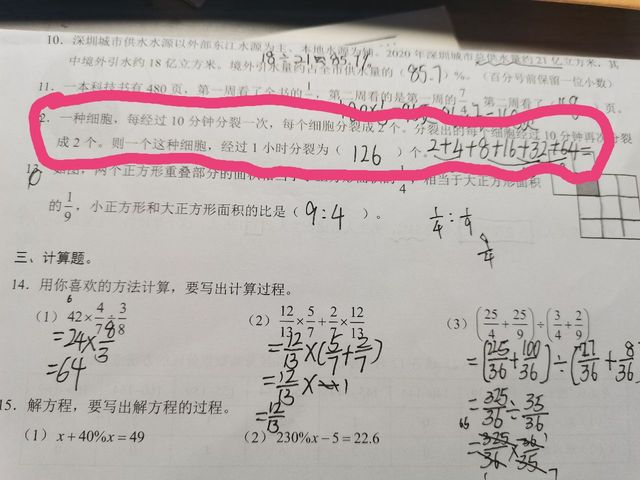 10. 深圳城市供水水源以外部东江水源为主、本地水源为辅。2020年深圳城市总供水量约21亿立方米,其
中境外引水约18亿立方米。境外引水量约占全市供水量的(85.7)%。(百分号前保留一位小数)
18÷21≈85.7%
11. 一本科技书有480页,第一周看了全书的 第二周看的是第一周的 第二周看了( )页。
2. 一种细胞,每经过10分钟分裂一次,每个细胞分裂成2个。分裂出的每个细胞经过10分钟再次分裂
成2个。则一个这种细胞,经过1小时分裂为(126)个。2+4+8+16+32+64=
如图,两个正方形重叠部分的面积相当于 正方形面积的1/4,相当于大正方形面积
的1/9,小正方形和大正方形面积的比是(9:4)。
1/4:1/9
9/4
三、计算题。
14. 用你喜欢的方法计算,要写出计算过程。
(1) 42×4/7÷3/8 (2) 12/13×5/7+2/7×12/13 (3) (25/4+25/9)÷(3/4+2/9)
6
=24×8/3 =12/13×(5/7+2/7) =(225/36+100/36)÷(27/36+8/36
=64 =12/13×1 =325/36÷35/36
=12/13 =325/36×36/35
65
15. 解方程,要写出解方程的过程。
(1) x+40%x=49 (2) 230%x-5=22.6